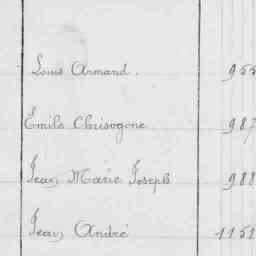 Louis Armand. 955
Emile Chrisogone 987
Jean Marie Joseph 988
Jean André 1151